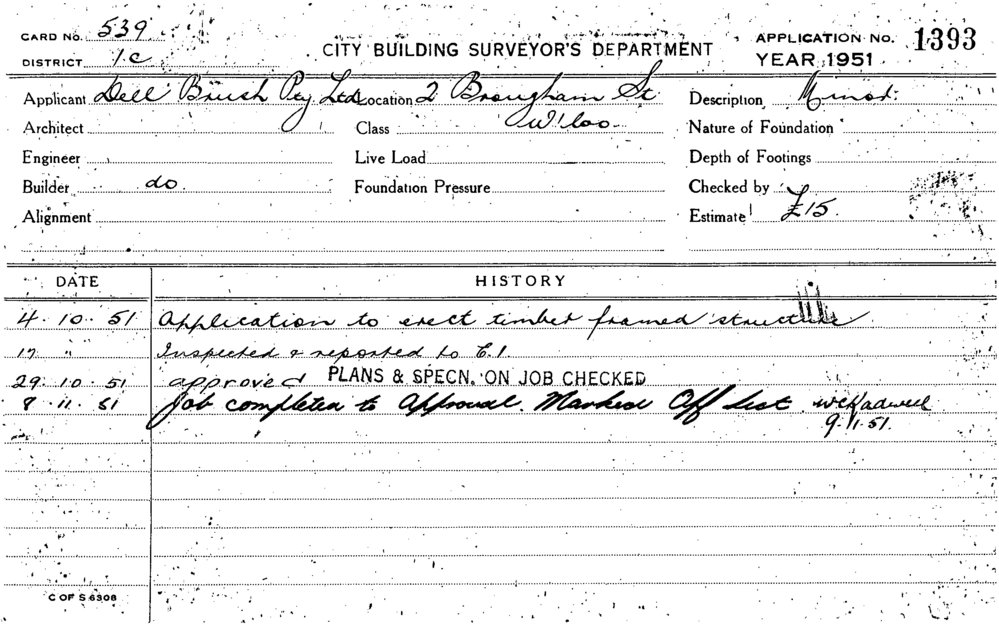 CARD No. 539
DISTRICT 1c
CITY BUILDING SURVEYOR'S DEPARTMENT
APPLICATION No. 1393
YEAR 1951
Applicant Dell Brush Pty Ltd Location 2 Brougham St W'loo Description Minor.
Architect Class Nature of Foundation
Engineer Live Load Depth of Footings
Builder do. Foundation Pressure Checked by
Alignment Estimate £15.
DATE HISTORY
4.10.51 Application to erect timber framed structure
17 " Inspected & reported to C.I.
29.10.51 approved PLANS & SPECN. ON JOB CHECKED
8.11.51 Job completed to Approval. Marked Off List
9.11.51.
C OF S 6306